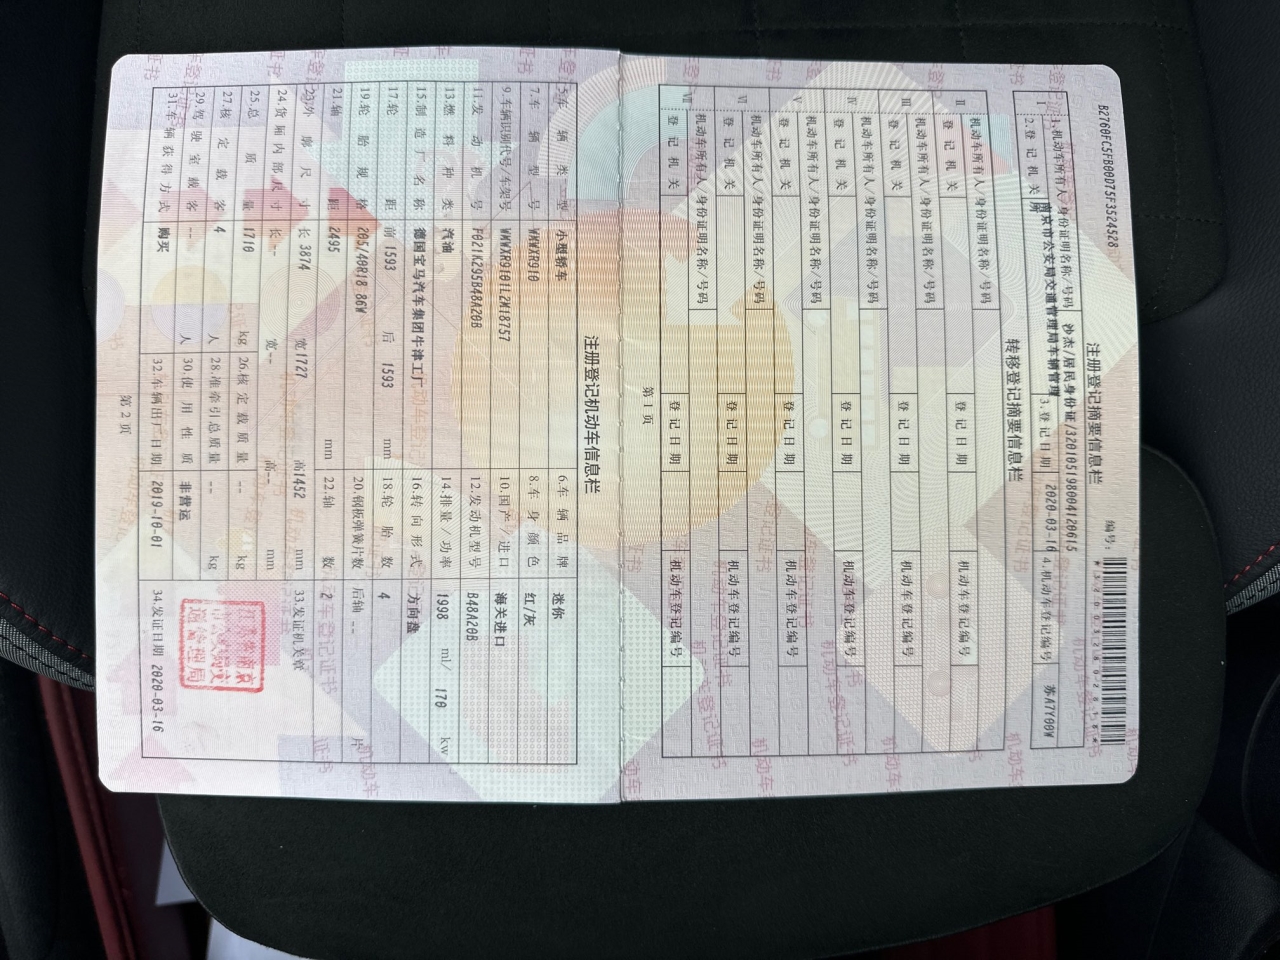 B2760FC5FB00D75F3524528
编号:
注册登记摘要信息栏
I 1.机动车所有人/身份证明名称/号码 沙杰/居民身份证/320105198004120615
2.登记机关 南京市公安局交通管理局车辆管理所 3.登记日期 2020-03-16 4.机动车登记编号 苏A7Y00W
转移登记摘要信息栏
II 机动车所有人/身份证明名称/号码
登记机关 登记日期 机动车登记编号
III 机动车所有人/身份证明名称/号码
登记机关 登记日期 机动车登记编号
IV 机动车所有人/身份证明名称/号码
登记机关 登记日期 机动车登记编号
V 机动车所有人/身份证明名称/号码
登记机关 登记日期 机动车登记编号
VI 机动车所有人/身份证明名称/号码
登记机关 登记日期 机动车登记编号
VII 机动车所有人/身份证明名称/号码
登记机关 登记日期 机动车登记编号
第 1 页
注册登记机动车信息栏
5.车辆类型 小型轿车 6.车辆品牌 迷你
7.车辆型号 WMWXR910 8.车身颜色 红/灰
9.车辆识别代号/车架号 WMWXR9101L2M18757 10.国产/进口 海关进口
11.发动机号 F021K295B48A20B 12.发动机型号 B48A20B
13.燃料种类 汽油 14.排量/功率 1998 ml/ 170 kw
15.制造厂名称 德国宝马汽车集团牛津工厂 16.转向形式 方向盘
17.轮距 前 1593 后 1593 mm 18.轮胎数 4
19.轮胎规格 205/40R18 86W 20.钢板弹簧片数 后轴 -- 片
21.轴距 2495 mm 22.轴数 2
23.外廓尺寸 长 3874 宽 1727 高 1452 mm 33.发证机关章
24.货厢内部尺寸 长 -- 宽 -- 高 -- mm
25.总质量 1710 kg 26.核定载质量 -- kg
27.核定载客 4 人 28.准牵引总质量 -- kg
29.驾驶室载客 -- 人 30.使用性质 非营运
31.车辆获得方式 购买 32.车辆出厂日期 2019-10-01 34.发证日期 2020-03-16
第 2 页